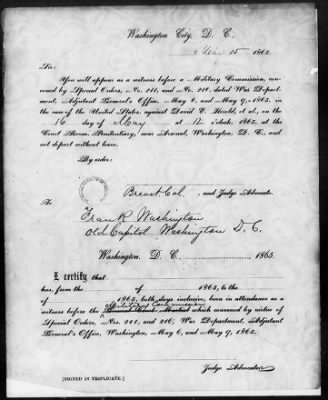 Washington City, D. C.
May 15 1865.
Sir:
You will appear as a witness before a Military Commission, con-
vened by Special Orders, No. 211, and No. 216, dated War Depart-
ment, Adjutant General's Office, May 6, and May 9, 1865, in
the case of the United States, against David E. Herold, et al., on the
16 day of May at 12 o'clock, 1865, at the
Court Room, Penitentiary, near Arsenal, Washington, D. C., and
not depart without leave.
By order:
Brevet Col. and Judge Advocate.
To
Frank Washington
Old Capitol Washington D. C.
Washington, D. C., 1865.
I certify that
has, from the of 1865, to the
of 1865, both days inclusive, been in attendance as a
witness before the General Court Martial which convened by virtue of
Special Orders, Nos. 211, and 216, War Department, Adjutant
General's Office, Washington, May 6, and May 9, 1865.
Judge Advocate.
[SIGNED IN TRIPLICATE.]